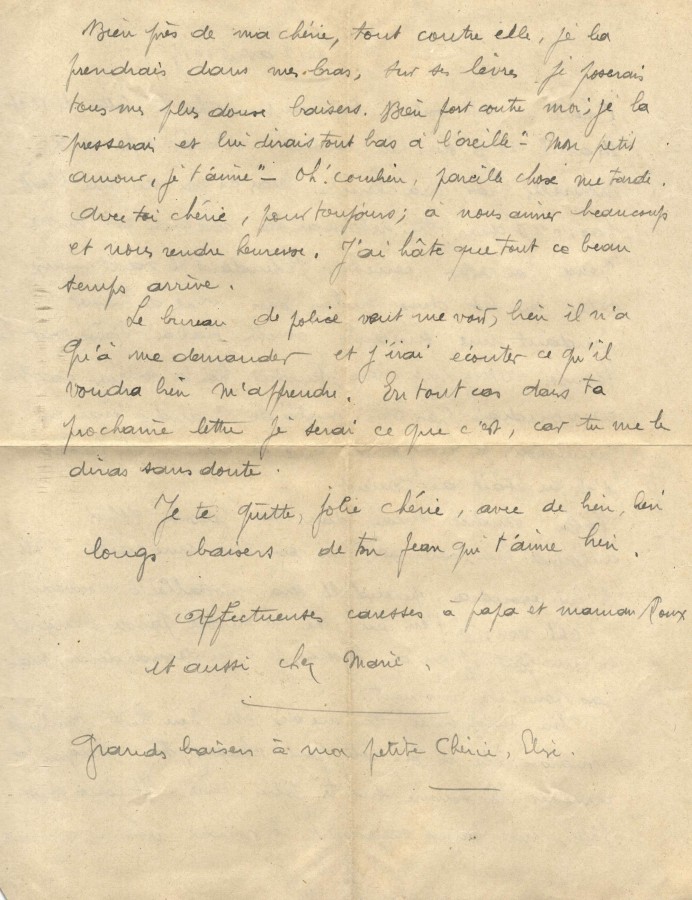 Bien près de ma chérie, tout contre elle, je la
prendrais dans mes bras, sur ses lèvres je poserais
tous mes plus doux baisers. Bien fort contre moi; je la
presserai et lui dirais tout bas à l'oreille "- Mon petit
amour, je t'aime" - Oh! combien, pareille chose me tarde.
Avec toi chérie, pour toujours; à nous aimer beaucoup
et nous rendre heureux. J'ai hâte que tout ce beau
temps arrive.
Le bureau de police veut me voir, bien il n'a
qu'à me demander et j'irai écouter ce qu'il
voudra bien m'apprendre. En tout cas dans ta
prochaine lettre je serai ce que c'est, car tu me le
diras sans doute.
Je te quitte, jolie chérie, avec de bien, bien
longs baisers de ton Jean qui t'aime bien.
Affectueuses caresses à papa et maman
et aussi chez Marie.
Grands baisers à ma petite Chérie,